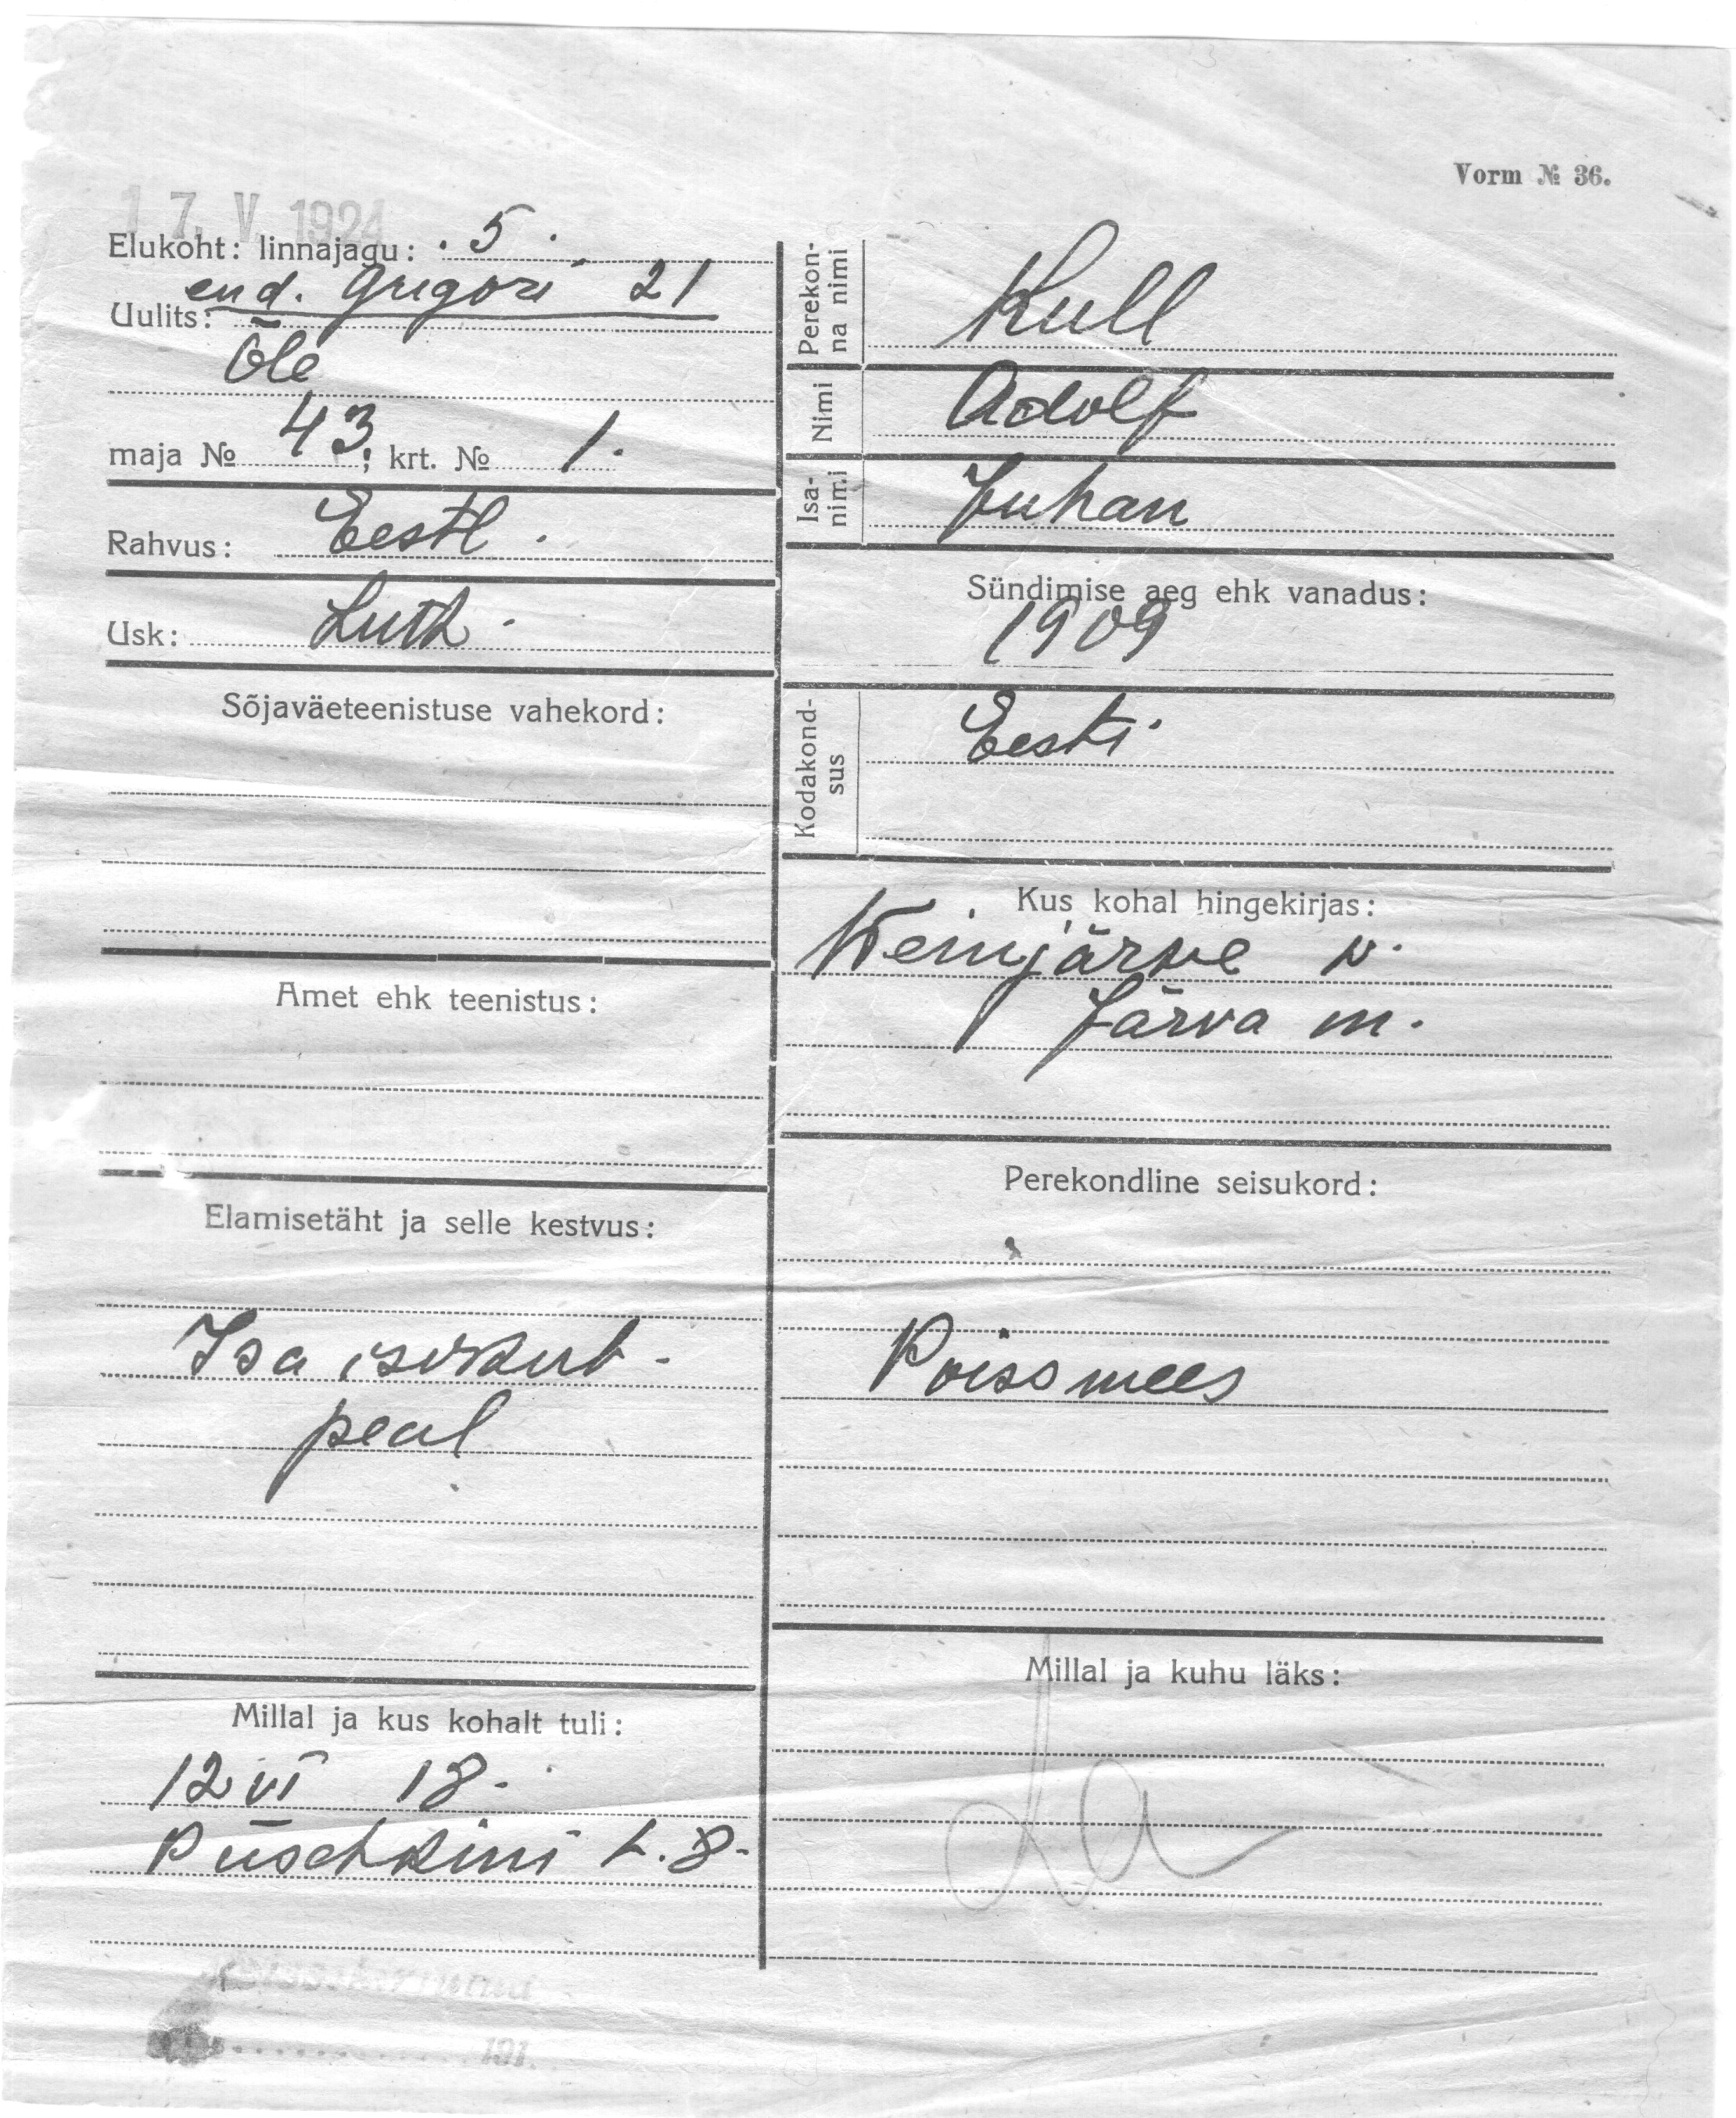 Vorm № 36.
17. V 1924
Elukoht: linnajagu: 5.
end. Grigori 21
Uulits:
Õle
maja № 43; krt. № 1.
Rahvus: Eestl.
Usk: Luth.
Sõjaväeteenistuse vahekord:
Amet ehk teenistus:
Elamisetäht ja selle kestvus:
Isa isikut-
peal
Millal ja kus kohalt tuli:
12 VI 18.
Puschkini t. 8.
191
Perekon-
na nimi
Kull
Nimi
Adolf
Isa-
nimi
Juhan
Sündimise aeg ehk vanadus:
1909
Kodakond-
sus
Eesti
Kus kohal hingekirjas:
Weinjärve v.
Järva m.
Perekondline seisukord:
Poissmees
Millal ja kuhu läks: